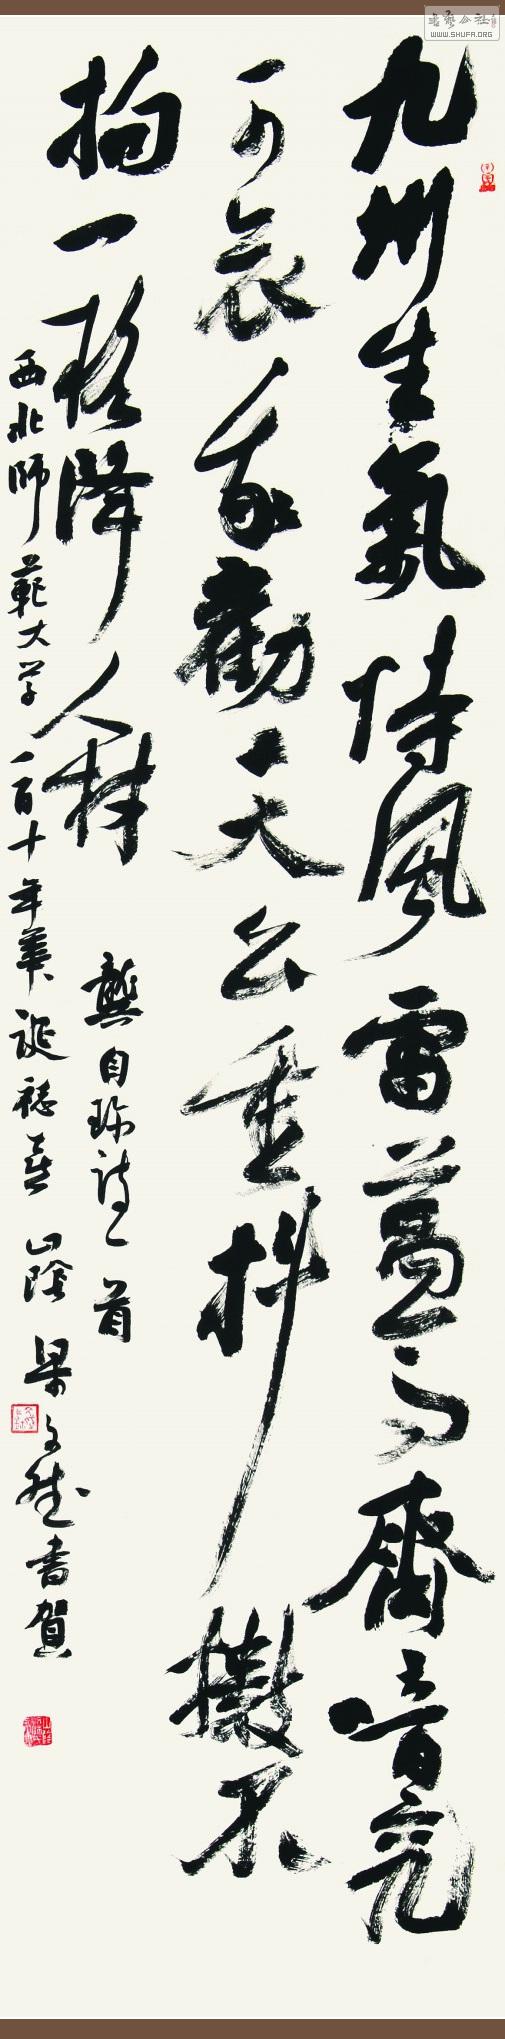 書藝公社
WWW.SHUFA.ORG
九州生氣恃風雷萬馬齊喑究
可哀我勸天公重抖擻不
拘一格降人材
龔自珍詩一首
西北師範大学一百十年華誕誌喜山陰梁文斌書賀